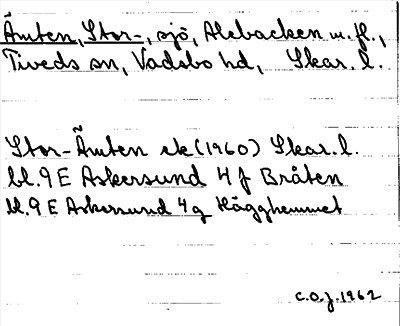 Ämten, Stor-, sjö, Alebacken m. fl.,
Tiveds sn, Vadsbo hd, Skar. l.
Stor-Ämten ek (1960) Skar. l.
bl. 9 E Askersund 4 f Bråten
bl. 9 E Askersund 4 g Högghemmet
C.O.J. 1962